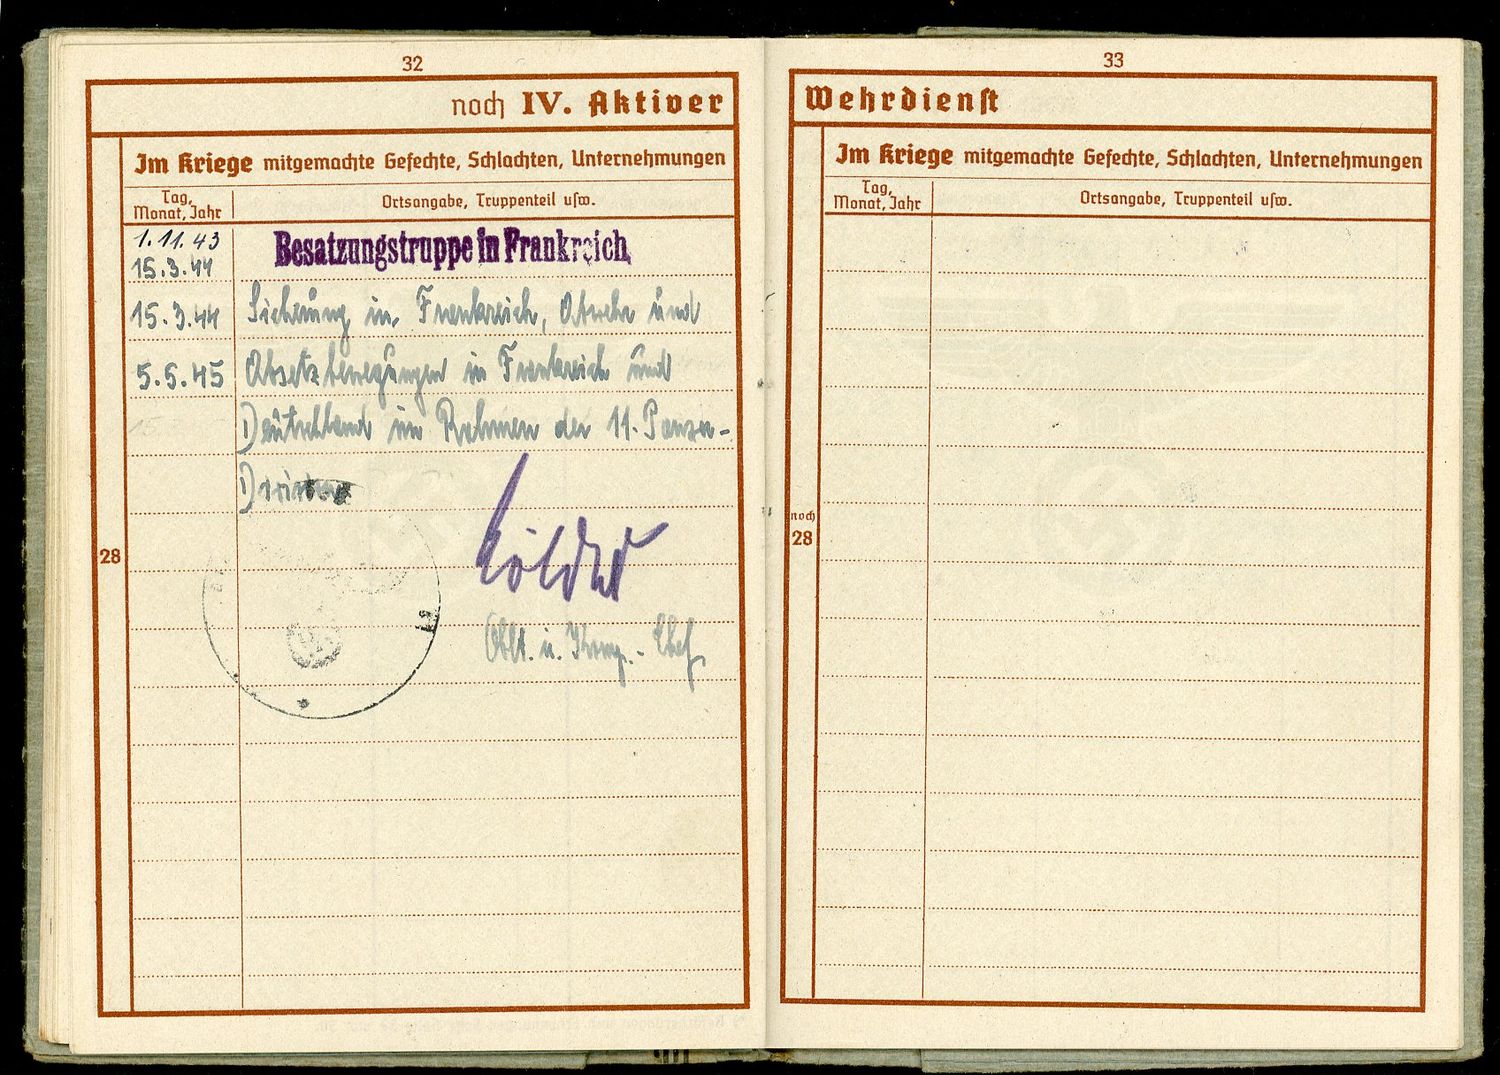 32
noch IV. Aktiver
Im Kriege mitgemachte Gefechte, Schlachten, Unternehmungen
Tag, Monat, Jahr
Ortsangabe, Truppenteil usw.
1.11.43
15.3.44
Besatzungstruppe in Frankreich
15.3.44 Sicherung in Frankreich, Abwehr und
5.5.45 Absetzbewegungen in Frankreich und
Deutschland im Rahmen der 11. Panzer-
Division
28
Oblt. u. Komp.-Chef
33
Wehrdienst
Im Kriege mitgemachte Gefechte, Schlachten, Unternehmungen
Tag, Monat, Jahr
Ortsangabe, Truppenteil usw.
noch
28